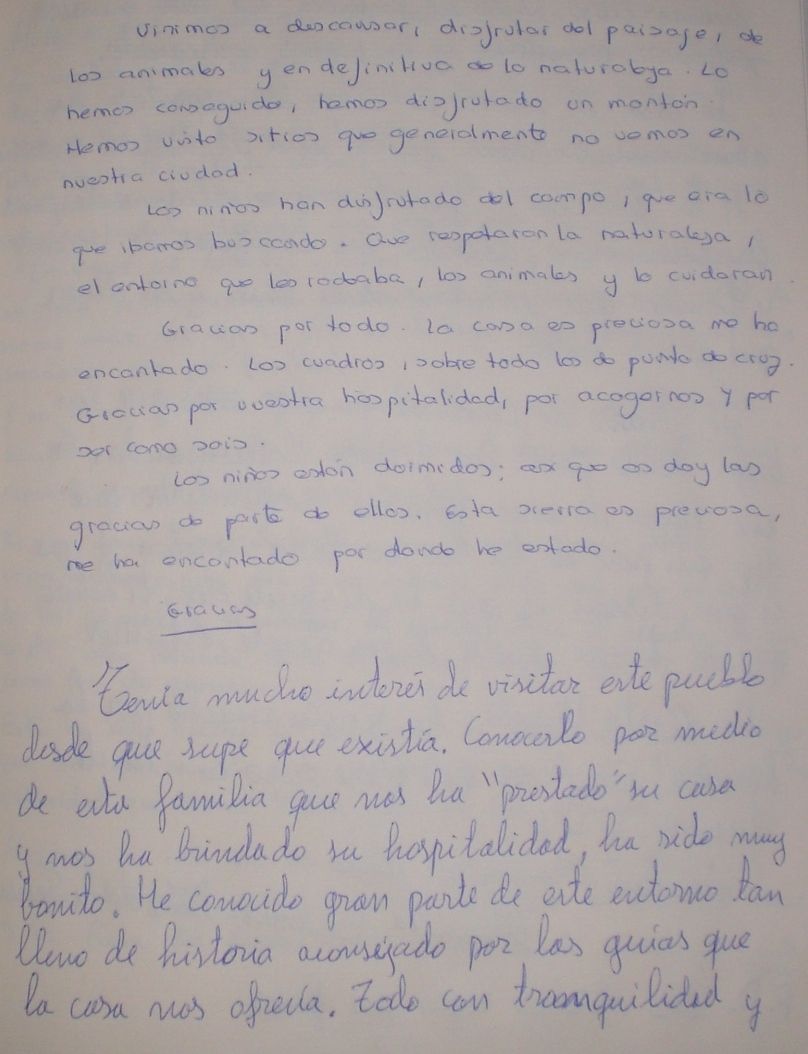 Vinimos a descansar, disfrutar del paisaje, de
los animales y en definitiva de la naturaleza. Lo
hemos conseguido, hemos disfrutado un montón.
Hemos visto sitios que generalmente no vemos en
nuestra ciudad.
Los niños han disfrutado del campo, que era lo
que ibamos buscando. Que respetaran la naturaleza,
el entorno que les rodeaba, los animales y lo cuidaran.
Gracias por todo. La casa es preciosa me ha
encantado. Los cuadros, sobre todo los de punto de cruz.
Gracias por vuestra hospitalidad, por acogernos y por
ser como sois.
Los niños están dormidos; asi que os doy las
gracias de parte de ellos. Esta sierra es preciosa,
me ha encantado por donde he estado.
Gracias
Tenía mucho interés de visitar este pueblo
desde que supe que existía. Conocerlo por medio
de esta familia que nos ha "prestado" su casa
y nos ha brindado su hospitalidad, ha sido muy
bonito. He conocido gran parte de este entorno tan
lleno de historia aconsejado por las guías que
la casa nos ofrecía. Todo con tranquilidad y